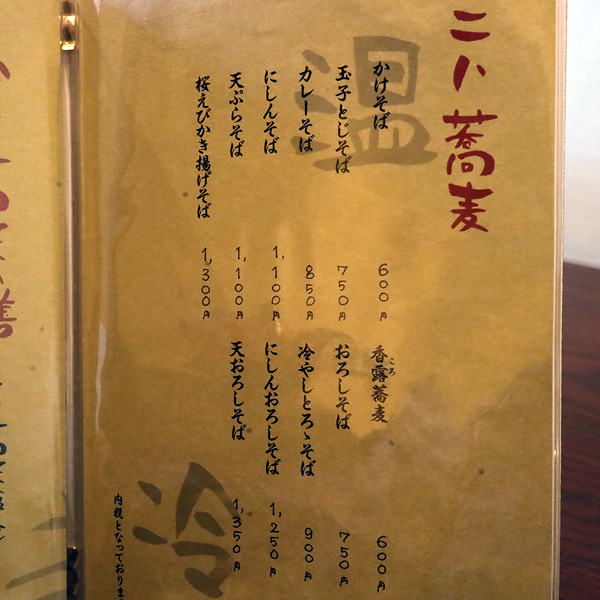 二八蕎麦
温
かけそば 600円
玉子とじそば 750円
カレーそば 850円
にしんそば 1,100円
天ぷらそば 1,100円
桜えびかき揚げそば 1,300円
冷
香露蕎麦 600円
ころ
おろしそば 750円
冷やしとろゝそば 900円
にしんおろしそば 1,250円
天おろしそば 1,350円
内税となっておりま